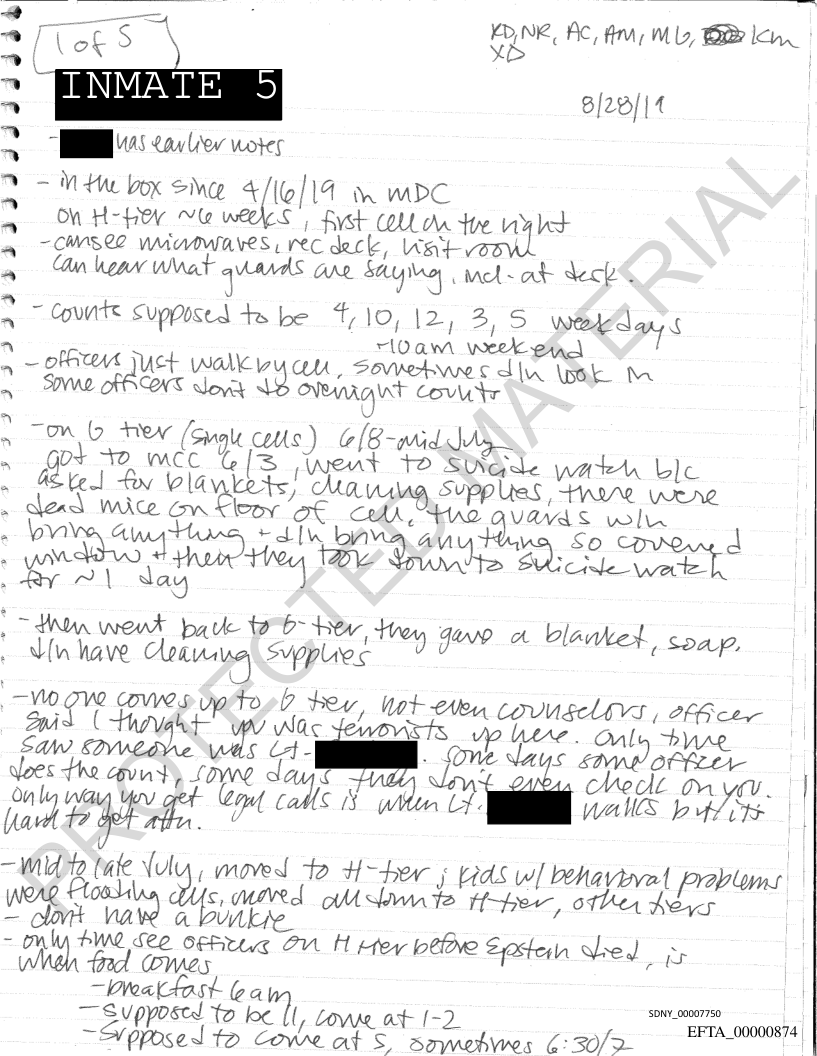 1 of 5
KD, NR, AC, AM, MG, KM
XD
INMATE 5
8/28/19
- has earlier notes
- in the box since 4/16/19 in MDC
on H-tier ~6 weeks, first cell on the right
- can see microwaves, rec deck, visit room
can hear what guards are saying, incl. at desk.
- counts supposed to be 4, 10, 12, 3, 5 weekdays
~10am weekend
- officers just walk by cell, sometimes d/n look in
some officers don't do overnight counts
- on G tier (single cells) 6/8-mid July
got to MCC 6/3, went to suicide watch b/c
asked for blankets, cleaning supplies, there were
dead mice on floor of cell. The guards w/n
bring anything + d/n bring anything so covered
window + then they took down to suicide watch
for ~1 day
- then went back to G-tier, they gave a blanket, soap.
d/n have cleaning supplies
- no one comes up to G tier, not even counselors, officer
said I thought you was terrorists up here. Only time
saw someone was Lt. . some days some officer
does the count, some days they don't even check on you.
Only way you get legal calls is when Lt. walks but it's
hard to get attn.
- mid to late July, moved to H-tier; kids w/ behavioral problems
were flooding cells, moved all down to H-tier, other tiers
- don't have a bunkie
- only time see officers on H tier before Epstein died, is
when food comes
- breakfast 6am
- supposed to be 11, come at 1-2
- supposed to come at 5, sometimes 6:30/7
PROTECTED MATERIAL
SDNY_00007750
EFTA_00000874